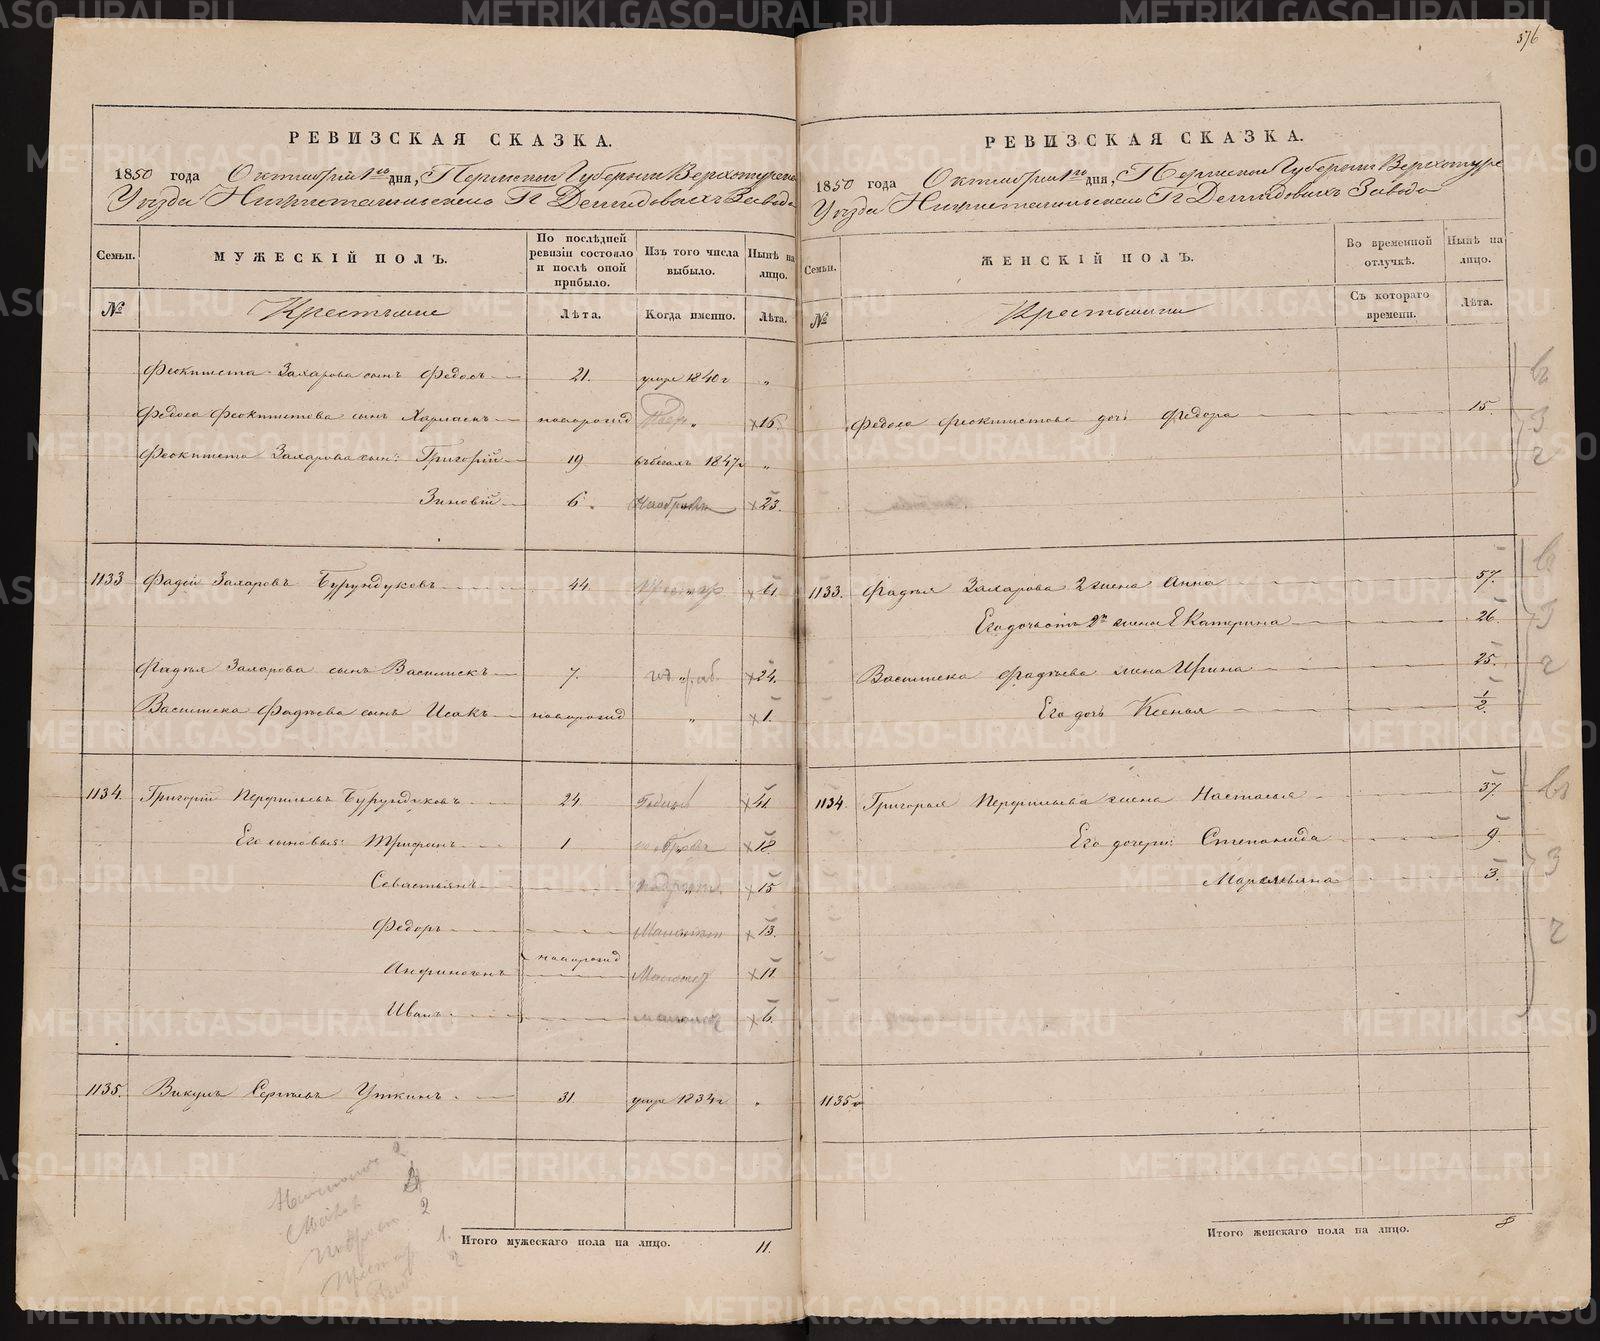 376
РЕВИЗСКАЯ СКАЗКА.
1850 года Октября 1го дня, Пермской Губернии Верхотурска
Уезда Нижнетагильскаго Гг Демидовыхъ Завода
Семьи.
МУЖЕСКІЙ ПОЛЪ.
По послѣдней ревизіи состояло и послѣ оной прибыло.
Изъ того числа выбыло.
Нынѣ на лицо.
№
Крестьяне
Лѣта.
Когда именно.
Лѣта.
Феоктиста Захарова сынъ Федосъ 21. умре 1840 г "
Федоса Феоктистова сынъ новорожд " 16
Феоктиста Захарова сынъ: Григорій 19 въ бегахъ 1847 г "
Зиновій 6. 23.
1133 Фадей Захаровъ Бурундуковъ 44. 61.
Фадея Захарова сынъ Василискъ 7. 24.
Василиска Фадѣева сынъ Исакъ новорожд " 1.
1134. Григорій Перфильевъ Бурундуковъ 24. 41.
Его сыновья: Трифонъ 1 18.
Севастьянъ 15
Федоръ 13.
новорожд
Анфиногенъ 11.
Иванъ 6.
1135. Викулъ Сергѣевъ Уткинъ 31 умре 1834 г "
Итого мужескаго пола на лицо. 11.
РЕВИЗСКАЯ СКАЗКА.
1850 года Октября 1го дня, Пермской Губерніи Верхотурс
Уезда Нижнетагильскаго Гг Демидовыхъ Завода
Семьи.
ЖЕНСКІЙ ПОЛЪ.
Во временной отлучкѣ.
Нынѣ на лицо.
№
Крестьянки
Съ котораго времени.
Лѣта.
Федоса Феоктистова дочь Федора 15.
1133. Фадѣя Захарова 2 жена Анна 57.
Его дочь отъ 2й жены Екатерина 26.
Василиска Фадѣева жена Ирина 25.
Его дочь Ксенья 1/2.
1134. Григорья Перфильева жена Настасья 37.
Его дочери: Степонида 9.
Маремьяна 3.
1135
Итого женскаго пола на лицо. 8
METRIKI.GASO-URAL.RU